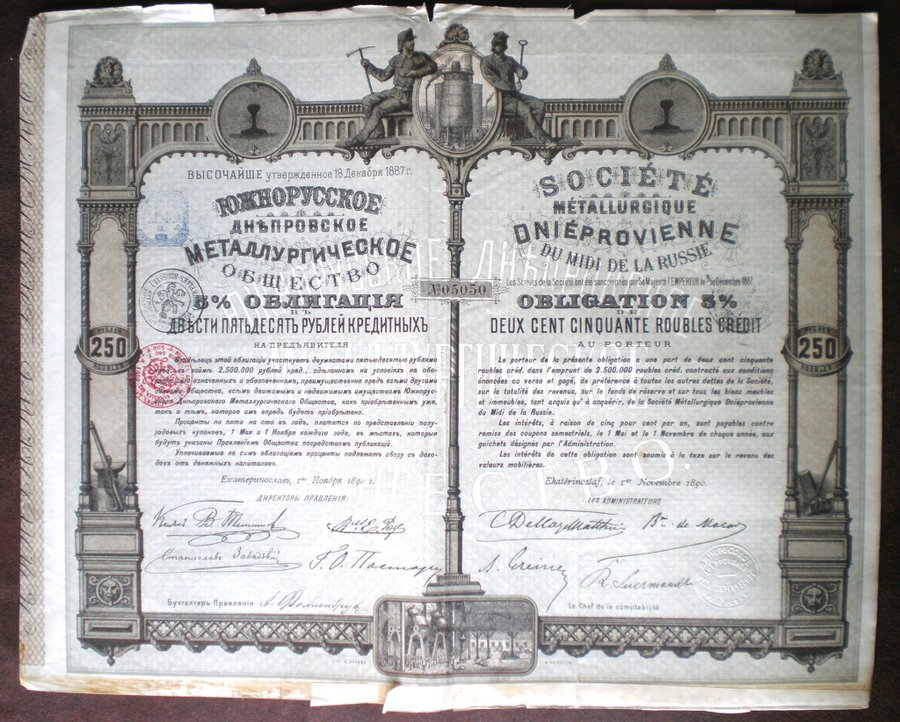 ВЫСОЧАЙШЕ утвержденное 18 Декабря 1887 г.
ЮЖНОРУССКОЕ
ДНѢПРОВСКОЕ
МЕТАЛЛУРГИЧЕСКОЕ
ОБЩЕСТВО
5% ОБЛИГАЦІЯ
ВЪ
ДВѢСТИ ПЯТЬДЕСЯТЪ РУБЛЕЙ КРЕДИТНЫХЪ
НА ПРЕДЪЯВИТЕЛЯ
Владѣлецъ этой облигаціи участвуетъ двумястами пятьюдесятью рублями
въ займѣ 2.500.000 рублей кред., сдѣланномъ на условіяхъ на обо-
означенныхъ и обозначенному, преимущественно предъ всѣми другими
общества, всѣмъ движимымъ и недвижимымъ имуществомъ Южнорус-
Днѣпровскаго Металлургическаго Общества, какъ пріобрѣтеннымъ уже,
такъ и тѣмъ, которое имъ впредь будетъ пріобрѣтено.
Проценты по пяти на сто въ годъ, платятся по представленіи полу-
годовыхъ купоновъ, 1 Мая и 1 Ноября каждаго года, въ мѣстахъ, которыя
будутъ указаны Правленіемъ Общества посредствомъ публикацій.
Уплачиваемые по симъ облигаціямъ проценты подлежатъ сбору съ дохо-
довъ отъ денежныхъ капиталовъ.
Екатеринославъ, 1го Ноября 1890 г.
ДИРЕКТОРЫ ПРАВЛЕНІЯ:
Бухгалтеръ Правленія
№ 05050
250
РУБЛЕЙ
ROUBLES
SOCIÉTÉ
MÉTALLURGIQUE
DNIÉPROVIENNE
DU MIDI DE LA RUSSIE
Les Statuts de la Société ont été sanctionnés par Sa Majesté l'EMPEREUR le 18/30 Décembre 1887.
OBLIGATION 5%
DE
DEUX CENT CINQUANTE ROUBLES CRÉDIT
AU PORTEUR
Le porteur de la présente obligation a une part de deux cent cinquante
roubles créd. dans l'emprunt de 2.500.000 roubles créd. contracté aux conditions
énoncées au verso et gagé, de préférence à toutes les autres dettes de la Société,
sur la totalité des revenus, sur le fonds de réserve et sur tous les biens meubles
et immeubles, tant acquis qu'à acquérir, de la Société Métallurgique Dniéprovienne
du Midi de la Russie.
Les intérêts, à raison de cinq pour cent par an, sont payables contre
remise des coupons semestriels, le 1 Mai et le 1 Novembre de chaque année, aux
guichets désignés par l'Administration.
Les intérêts de cette obligation sont soumis à la taxe sur le revenu des
valeurs mobilières.
Ekatérinoslaf, le 1er Novembre 1890.
LES ADMINISTRATEURS
Le Chef de la comptabilité
250